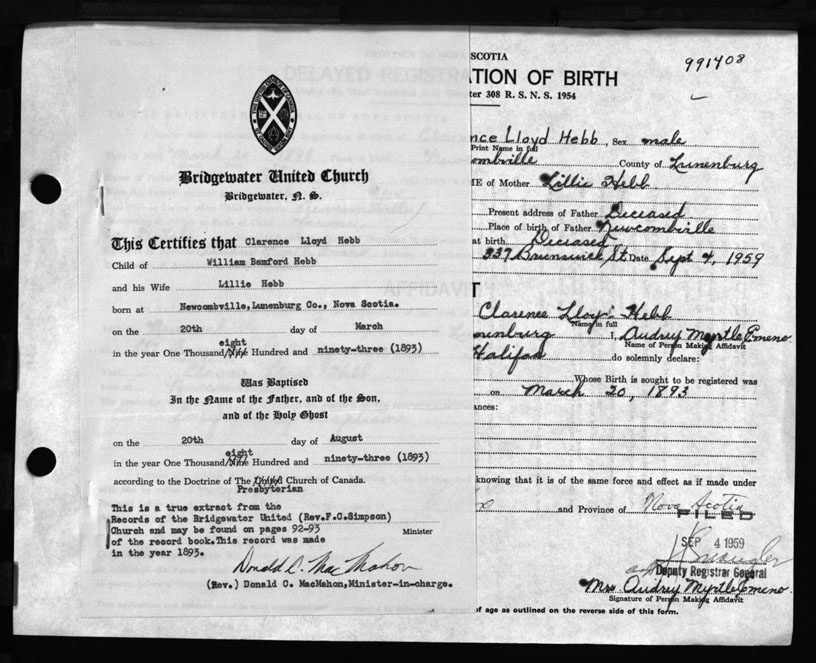 Bridgewater United Church
Bridgewater, N. S.
This Certifies that Clarence Lloyd Hebb
Child of William Bamford Hebb
and his Wife Lillie Hebb
born at Newcombville, Lunenburg Co., Nova Scotia.
on the 20th day of March
eight
in the year One Thousand/Nine Hundred and ninety-three (1893)
Was Baptised
In the Name of the Father, and of the Son,
and of the Holy Ghost
on the 20th day of August
eight
in the year One Thousand/Nine Hundred and ninety-three (1893)
according to the Doctrine of The United Church of Canada.
Presbyterian
This is a true extract from the
Records of the Bridgewater United (Rev.F.C.Simpson)
Church and may be found on pages 92-93 Minister
of the record book. This record was made
in the year 1893.
Donald C. MacMahon
(Rev.) Donald C. MacMahon, Minister-in-charge.
SCOTIA
991408
TION OF BIRTH
ter 308 R. S. N. S. 1954
nce Lloyd Hebb, Sex male
Print Name in full
ombville County of Lunenburg
ME of Mother Lillie Hebb
Present address of Father Deceased
Place of birth of Father Newcombville
at birth Deceased
337 Brunswick St Date Sept 4, 1959
T
Clarence Lloyd Hebb
Name in full
nenburg I, Audrey Myrtle Emeno
Name of Person Making Affidavit
Halifax do solemnly declare:
Whose Birth is sought to be registered was
on March 20, 1893
ances:
knowing that it is of the same force and effect as if made under
x and Province of Nova Scotia
FILED
SEP 4 1959
Deputy Registrar General
Mrs Audrey Myrtle Emeno
Signature of Person Making Affidavit
of age as outlined on the reverse side of this form.